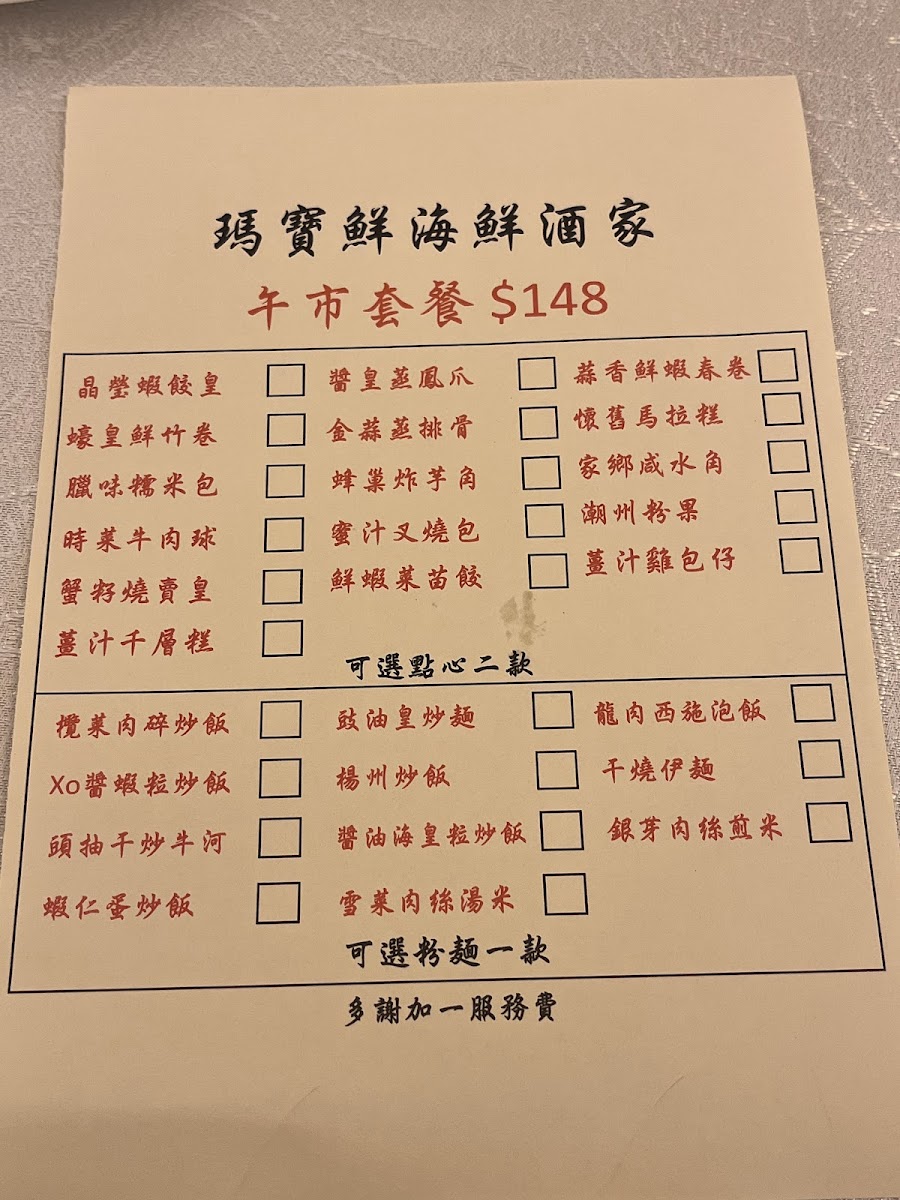 瑪寶鮮海鮮酒家
午市套餐 $148
晶瑩蝦餃皇 醬皇蒸鳳爪 蒜香鮮蝦春卷
蠔皇鮮竹卷 金蒜蒸排骨 懷舊馬拉糕
臘味糯米包 蜂巢炸芋角 家鄉咸水角
時菜牛肉球 蜜汁叉燒包 潮州粉果
蟹籽燒賣皇 鮮蝦菜苗餃 薑汁雞包仔
薑汁千層糕
可選點心二款
欖菜肉碎炒飯 豉油皇炒麵 龍肉西施泡飯
Xo醬蝦粒炒飯 楊州炒飯 干燒伊麵
頭抽干炒牛河 醬油海皇粒炒飯 銀芽肉絲煎米
蝦仁蛋炒飯 雪菜肉絲湯米
可選粉麵一款
多謝加一服務費